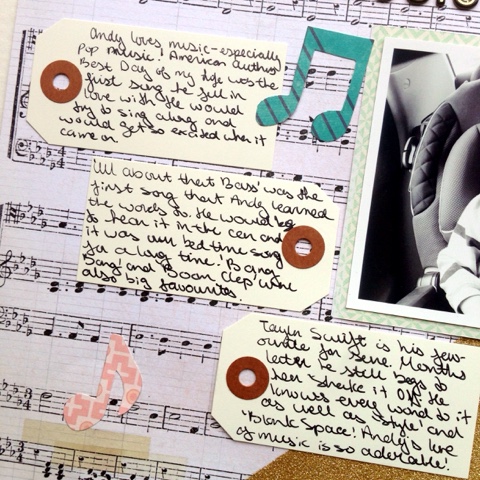 Andy loves music - especially
Pop music. American authors
Best Day of my life was the
first song he fell in
love with. He would
try to sing along and
would get so excited when it
came on.
All about that Bass was the
first song that Andy learned
the words to. He would beg
to hear it in the car and
it was our bed time song
for a long time! Bang
Bang! and Boom Clap were
also big favourites.
Taylor Swift is his fav-
ourite for sure. Months
later he still begs to
hear Shake it Off. He
knows every word to it
as well as Style! and
"Blank Space! Andy's love
of music is so adorable!